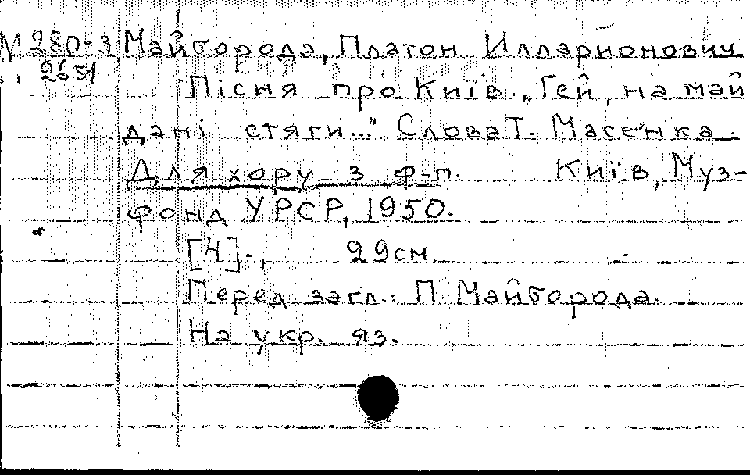 М 280-3 Майборода, Платон Илларионович
2651 Пісня про Київ. „Гей, на май
дані стяги..." Слова Т. Масенка.
Для хору з ф-п. Київ, Муз-
фонд УРСР, 1950.
[4]., 29см
Перед загл.: П. Майборода.
На укр. яз.